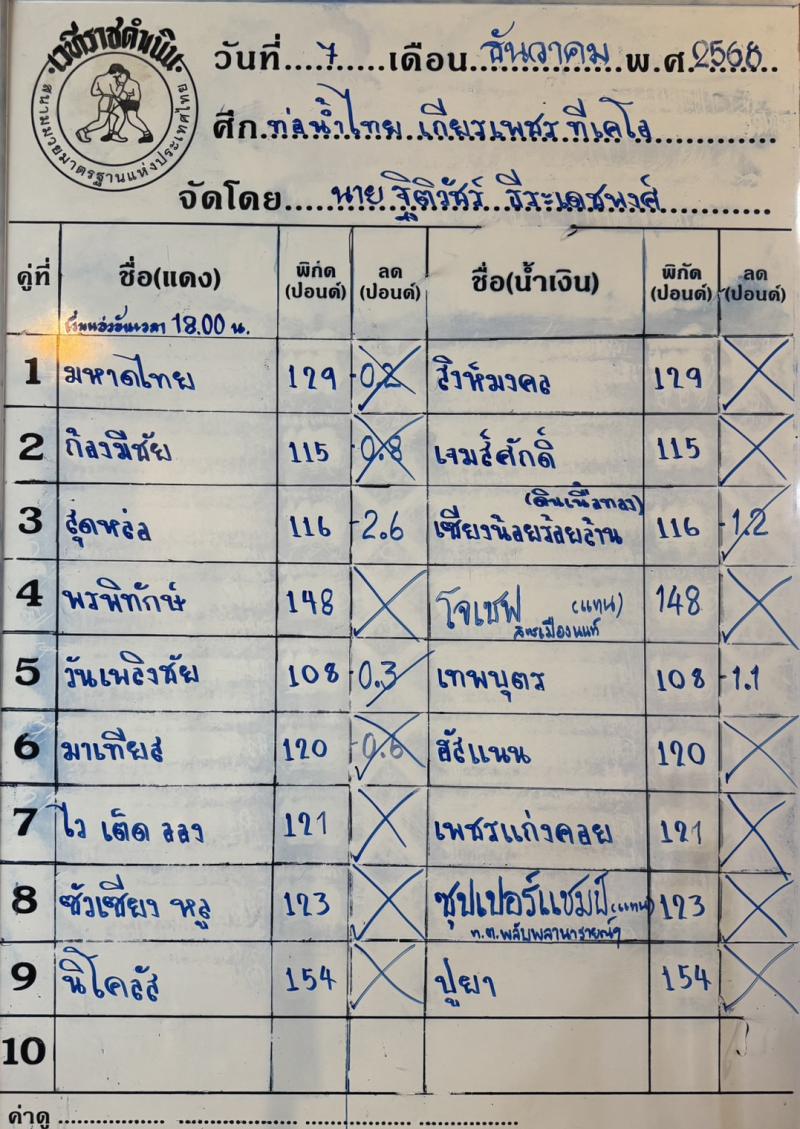 เวทีราชดำเนิน
สนามมวยมาตรฐานแห่งประเทศไทย
วันที่....7.....เดือน..ธันวาคม..พ.ศ.2568
ศึก.ท่อน้ำไทย เกียรเพชร ทีเคโอ
จัดโดย.....นาย ฐิติวัชร์ ธีระเดชพงศ์
คู่ที่ ชื่อ(แดง) พิกัด (ปอนด์) ลด (ปอนด์) ชื่อ(น้ำเงิน) พิกัด (ปอนด์) ลด (ปอนด์)
เวลา 18.00 น.
1 มหาดไทย 129 -0.2 สิงห์มงคล 129
2 ก้องมีชัย 115 -0.8 เจมส์ศักดิ์ 115
(ดินเนื้อทอง)
3 สุดหล่อ 116 -2.6 เชียงน้อยร้อยล้าน 116 -1.2
4 พรพิทักษ์ 148 โจเซฟ (แทน) 148
5 วันเพลิงชัย 108 -0.3 เทพบุตร 108 -1.1
6 มาเทียส 120 -0.6 ฮัสแนน 120
7 ไว เต็ด ออง 121 เพชรแก่งคอย 121
8 ซัวเซียง หลู 123 ซุปเปอร์แชมป์ (แทน) 123
9 นิโคลัส 154 ปูยา 154
10
ค่าดู